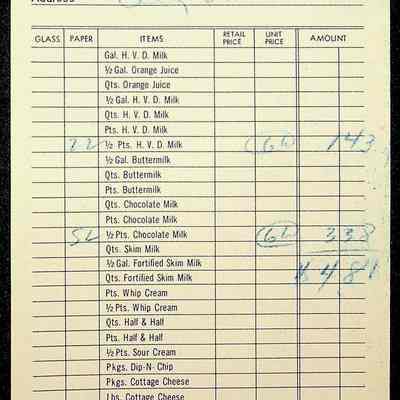 Address
GLASS PAPER ITEMS RETAIL PRICE UNIT PRICE AMOUNT
Gal. H. V. D. Milk
½ Gal. Orange Juice
Qts. Orange Juice
½ Gal. H. V. D. Milk
Qts. H. V. D. Milk
Pts. H. V. D. Milk
22 ½ Pts. H. V. D. Milk 143
½ Gal. Buttermilk
Qts. Buttermilk
Pts. Buttermilk
Qts. Chocolate Milk
Pts. Chocolate Milk
52 ½ Pts. Chocolate Milk 338
Qts. Skim Milk
½ Gal. Fortified Skim Milk
Qts. Fortified Skim Milk
Pts. Whip Cream
½ Pts. Whip Cream
Qts. Half & Half
Pts. Half & Half
½ Pts. Sour Cream
Pkgs. Dip-N- Chip
Pkgs. Cottage Cheese
Lbs. Cottage Cheese